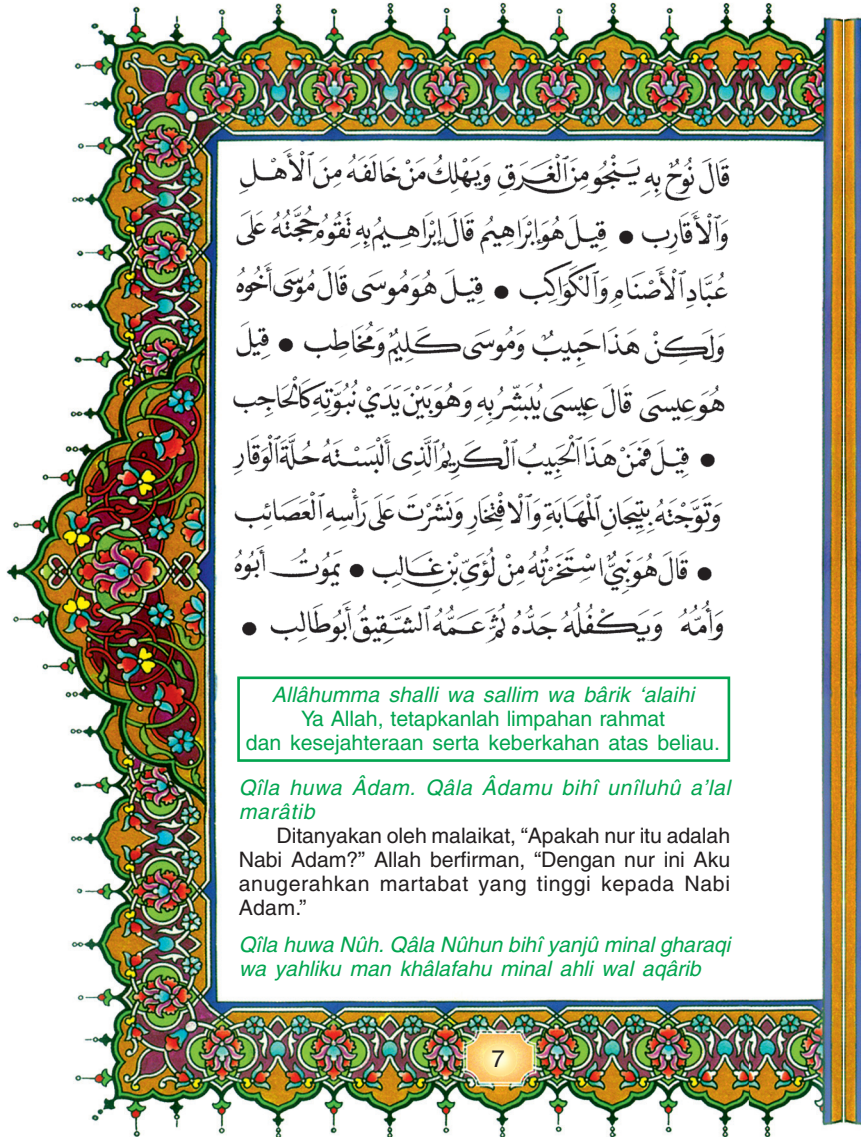 قَالَ نُوحٌ بِهِ يَنْجُو مِنَ ٱلْغَرَقِ وَيَهْلِكُ مَنْ خَالَفَهُ مِنَ ٱلْأَهْلِ
وَٱلْأَقَارِب ● قِيلَ هُوَ إِبْرَاهِيمُ قَالَ إِبْرَاهِيمُ بِهِ تَقُومُ حُجَّتُهُ عَلَى
عُبَّادِ ٱلْأَصْنَامِ وَٱلْكَوَاكِب ● قِيلَ هُوَ مُوسَى قَالَ مُوسَى أَخُوهُ
وَلَكِنْ هَذَا حَبِيبٌ وَمُوسَى كَلِيمٌ وَمُخَاطِب ● قِيلَ
هُوَ عِيسَى قَالَ عِيسَى يُبَشِّرُ بِهِ وَهُوَ بَيْنَ يَدَيْ نُبُوَّتِهِ كَالْحَاجِب
● قِيلَ فَمَنْ هَذَا ٱلْحَبِيبُ ٱلْكَرِيمُ ٱلَّذِى أَلْبَسْتَهُ حُلَّةَ ٱلْوَقَارِ
وَتَوَّجْتَهُ بِتِيجَانِ ٱلْمَهَابَةِ وَٱلْافْتِخَارِ وَنَشَرْتَ عَلَى رَأْسِهِ ٱلْعَصَائِب
● قَالَ هُوَ نَبِيٌّ اسْتَخَرْتُهُ مِنْ لُؤَيِّ بْنِ غَالِب ● يَمُوتُ أَبُوهُ
وَأُمُّهُ وَيَكْفُلُهُ جَدُّه ثُمَّ عَمُّهُ ٱلشَّقِيقُ أَبُوطَالِب ●
Allâhumma shalli wa sallim wa bârik ‘alaihi
Ya Allah, tetapkanlah limpahan rahmat
dan kesejahteraan serta keberkahan atas beliau.
Qîla huwa Âdam. Qâla Âdamu bihî unîluhû a’lal
marâtib
Ditanyakan oleh malaikat, “Apakah nur itu adalah
Nabi Adam?” Allah berfirman, “Dengan nur ini Aku
anugerahkan martabat yang tinggi kepada Nabi
Adam.”
Qîla huwa Nûh. Qâla Nûhun bihî yanjû minal gharaqi
wa yahliku man khâlafahu minal ahli wal aqârib
7